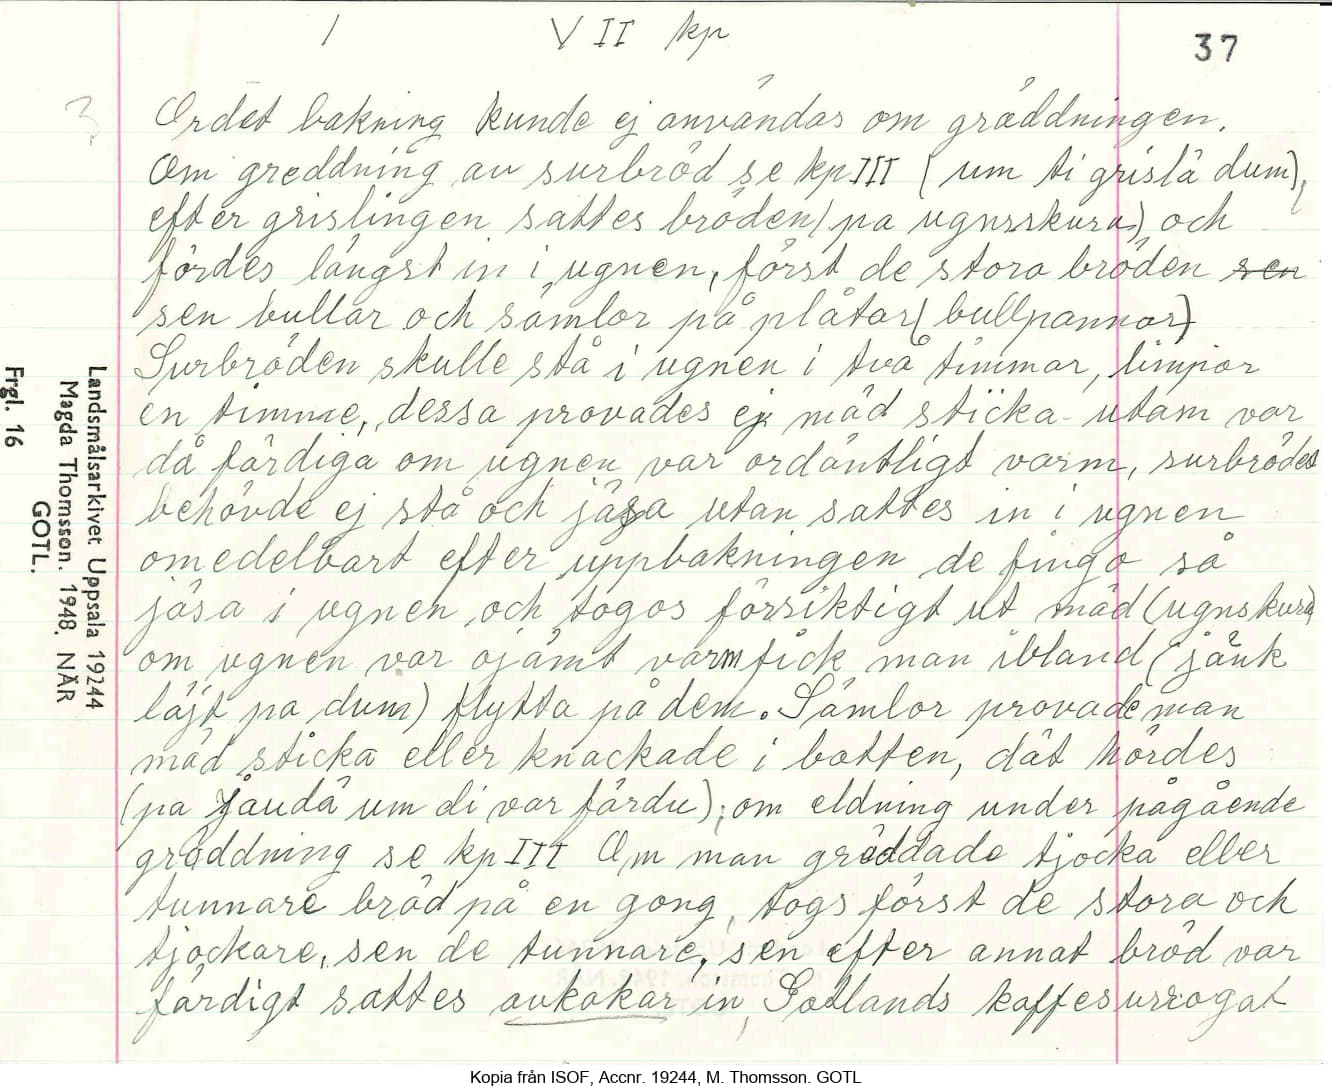 1 VII kp
37
Ordet bakning kunde ej användas om gräddningen.
Om greddning av surbröd se kp III (um ti grislä dum),
efter grislingen sattes bröden (pa ugnsskuru) och
fördes längst in i ugnen, först de stora bröden sen
sen bullar och sämlor på plåtar (bullpannor)
Surbröden skulle stå i ugnen i två timmar, limpor
en timme, dessa provades ej mäd sticka utam var
då färdiga om ugnen var ordäntligt varm, surbrödet
behövde ej stå och jäsa utan sattes in i ugnen
omedelbart efter uppbakningen de fingo så
jäsa i ugnen och togos försiktigt ut mäd (ugnskuru
om ugnen var ojämt varm fick man ibland (jänk
läjt pa dum) flytta på dem. Sämlor provade man
mäd sticka eller knackade i botten, dät hördes
(pa jaudä um di var färdu); om eldning under pågående
gräddning se kp III Om man gräddade tjocka eller
tunnare bröd på en gong, togs först de stora och
tjockare, sen de tunnare, sen efter annat bröd var
färdigt sattes avkokar in, Gotlands kaffesurrogat
Landsmålsarkivet Uppsala 19244
Magda Thomsson. 1948. NÄR
GOTL.
Frgl. 16
Kopia från ISOF, Accnr. 19244, M. Thomsson. GOTL